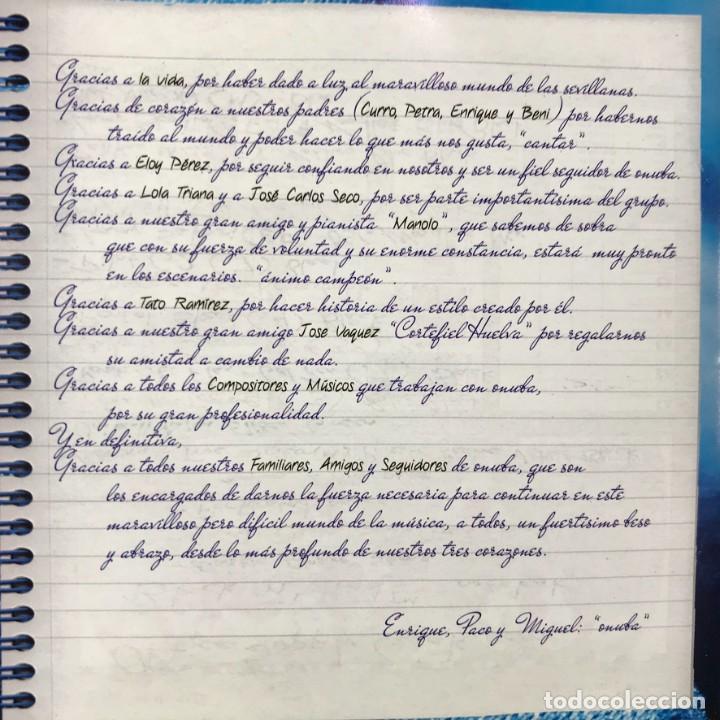 Gracias a la vida, por haber dado a luz al maravilloso mundo de las sevillanas.
Gracias de corazón a nuestros padres (Curro, Petra, Enrique y Beni) por habernos
traido al mundo y poder hacer lo que más nos gusta, "cantar".
Gracias a Eloy Pérez, por seguir confiando en nosotros y ser un fiel seguidor de onuba.
Gracias a Lola Triana y a José Carlos Seco, por ser parte importantisima del grupo.
Gracias a nuestro gran amigo y pianista "Manolo", que sabemos de sobra
que con su fuerza de voluntad y su enorme constancia, estará muy pronto
en los escenarios. "ánimo campeón".
Gracias a Tato Ramírez, por hacer historia de un estilo creado por él.
Gracias a nuestro gran amigo Jose Vaquez "Cortefiel Huelva" por regalarnos
su amistad a cambio de nada.
Gracias a todos los Compositores y Músicos que trabajan con onuba,
por su gran profesionalidad.
Y en definitiva,
Gracias a todos nuestros Familiares, Amigos y Seguidores de onuba, que son
los encargados de darnos la fuerza necesaria para continuar en este
maravilloso pero dificil mundo de la música, a todos, un fuertisimo beso
y abrazo, desde lo más profundo de nuestros tres corazones.
Enrique, Paco y Miguel: "onuba"
todocoleccion